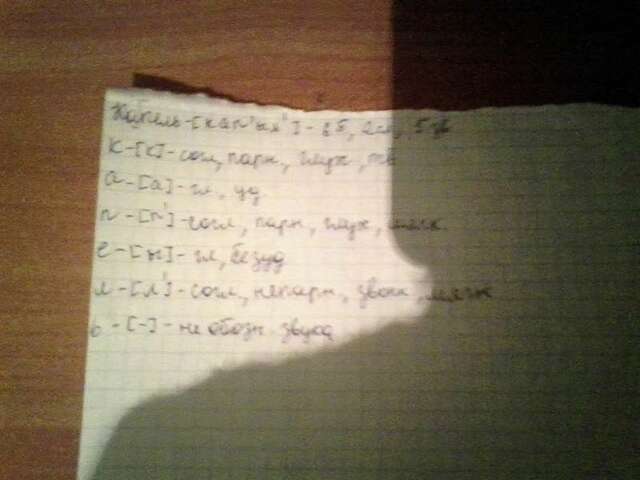 Капель-[кап'ыл']-6б, 2гл, 5 зв
к-[к]-согл, парн, глух, тв
а-[а]-гл, уд
п-[п']-согл, парн, глух, мягк
е-[ы]-гл, безуд
л-[л']-согл, непарн, звонк, мягк
ь-[-]-не обозн звука